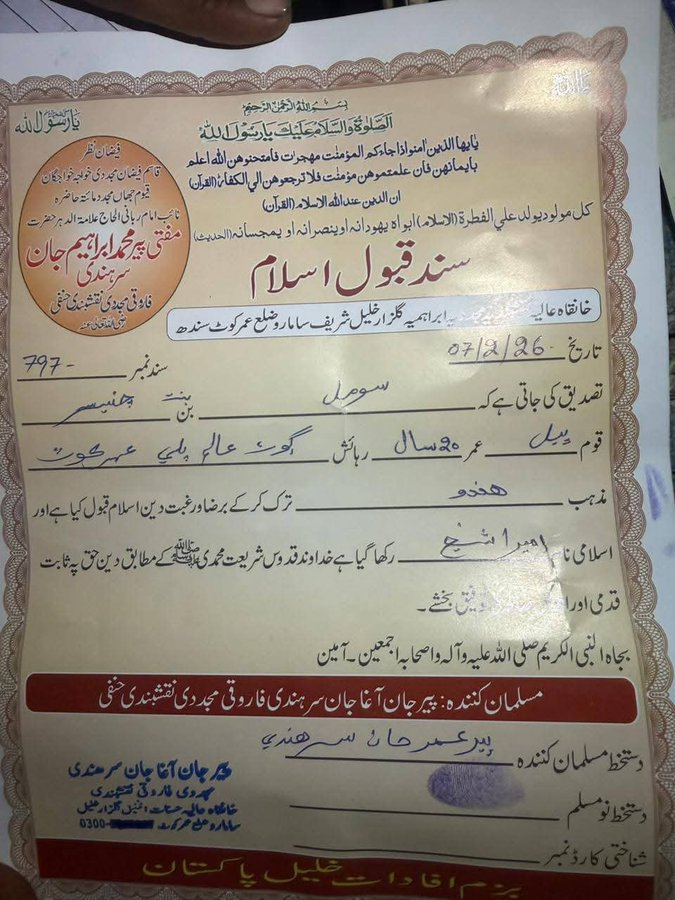 بسم اللہ الرحمٰن الرحیم
الصلوٰۃ والسلام علیک یا رسول اللہ
یا اللہ
یا رسول اللہ
یایها الذین امنو اذا جاءکم المؤمنت مهجرات فامتحنوهن الله اعلم
بایمانهن فان علمتموهن مؤمنت فلا ترجعوهن الي الکفار (القرآن)
ان الدین عندالله الاسلام (القرآن)
کل مولود یولد علي الفطرة (الاسلام) ابواه یهودانه او ینصرانه او یمجسانه (الحدیث)
فیضان نظر
قاسم فیضان مجددی خواجہ خواجگان
قیوم جهاں مجدد مائتہ حاضرہ
نائب امام ربانی الحاج علامۃ الدہر حضرت
مفتی پیر محمد ابراہیم جان
سرہندی
فاروقی مجددی نقشبندی حنفی
سند قبول اسلام
خانقاہ عالیہ ابراہمیہ گلزار خلیل شریف سامارو ضلع عمر کوٹ سندھ
تاریخ 07/2/26 سند نمبر 797-
تصدیق کی جاتی ہے کہ سومل بن بنت چنيسر
قوم ڀيل عمر 20 سال رہائش ڳوٺ عالم پلي عمرڪوٽ
مذہب هندو ترک کر کے برضا ورغبت دین اسلام قبول کیا ہے اور
اسلامی شيخ رکھا گیا ہے خداوند قدوس شریعت محمدی ﷺ کے مطابق دین حق پہ ثابت
قدمی اور توفیق بخشے۔
بجاہ النبی الکریم صلی اللہ علیہ وآلہ واصحابہ اجمعین۔ آمین
مسلمان کنندہ: پیر جان آغا جان سرہندی فاروقی مجددی نقشبندی حنفی
دستخط مسلمان کنندہ پير عمر جان سرهندي
دستخط نو مسلم
شناختی کارڈ نمبر
پیر جان آغا جان سرھندی
مجددی فاروقی نقشبندی
خانقاہ عالیہ گلزار خلیل
سامارو ضلع عمرکوٹ
0300-
بزم افادات خلیل پاکستان